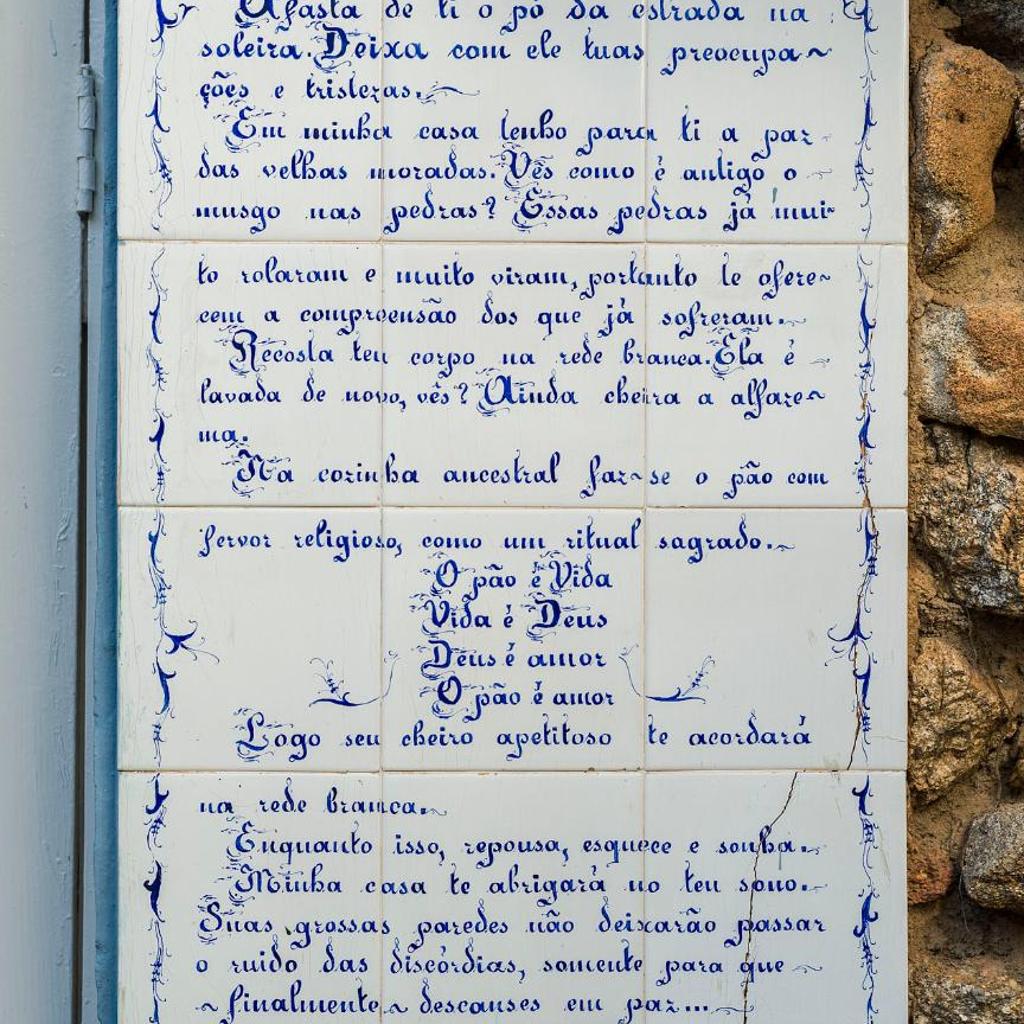 Afasta de ti o pó da estrada na
soleira. Deixa com ele tuas preocupa~
ções e tristezas.
Em minha casa tenho para ti a paz
das velhas moradas. Vês como é antigo o
musgo nas pedras? Essas pedras já mui~
to rolaram e muito viram, portanto te ofere~
cem a compreensão dos que já sofreram.
Recosta teu corpo na rede branca. Ela é
lavada de novo, vês? Ainda cheira a alfaze~
ma.
Na cozinha ancestral faz~se o pão com
fervor religioso, como um ritual sagrado.
O pão é Vida
Vida é Deus
Deus é amor
O pão é amor
Logo seu cheiro apetitoso te acordará
na rede branca.
Enquanto isso, repousa, esquece e sonha.
Minha casa te abrigará no teu sono.
Suas grossas paredes não deixarão passar
o ruido das discórdias, somente para que
~ finalmente ~ descanses em paz...